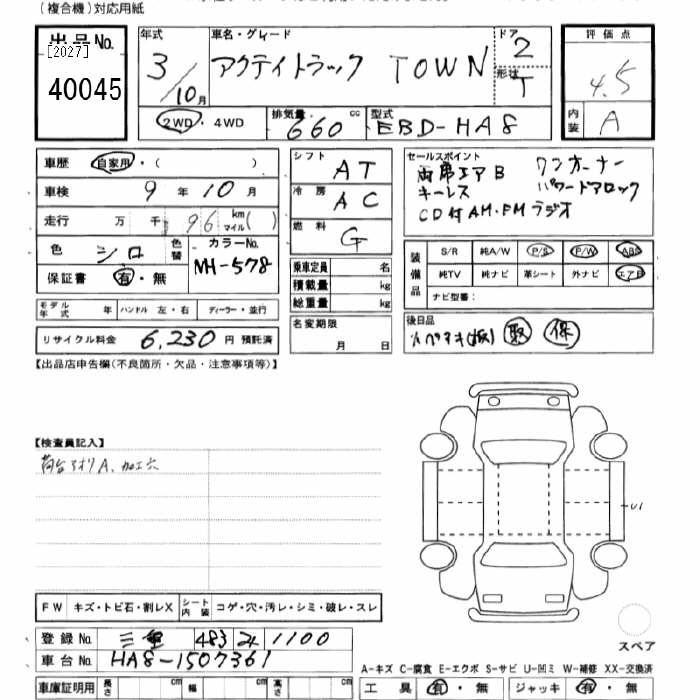 (複合機)対応用紙
出品No.
[2027]
40045
年式
3/10月
車名・グレード
アクティトラック TOWN
ドア
2
形状
T
評価点
4.5
内装
A
2WD・4WD
排気量
660 cc
型式
EBD-HA8
車歴 自家用・( )
車検 9年10月
走行 万 千 96 km マイル( )
色 シロ 色替
カラーNo.
NH-578
保証書 有・無
モデル年式 年 ハンドル 左・右 ディーラー・並行
リサイクル料金 6,230円 預託済
シフト AT
冷房 AC
燃料 G
乗車定員 名
積載量 kg
総重量 kg
名変期限
月 日
セールスポイント
両席エアB ワンオーナー
キーレス パワードアロック
CD付AM・FMラジオ
装備品
S/R 純A/W P/S P/W ABS
純TV 純ナビ 革シート 外ナビ エアB
ナビ型番:
後日品
取 保
【出品店申告欄(不良箇所・欠品・注意事項等)】
【検査員記入】
荷台アオリA、加工穴
U1
FW キズ・トビ石・割レX シート内装 コゲ・穴・汚レ・シミ・破レ・スレ
スペア
登録No. 三重 483 1100
車台No. HA8-1507361
A-キズ C-腐食 E-エクボ S-サビ U-凹ミ W-補修 XX-交換済
車庫証明用 長さ cm 幅 cm 高さ cm
工具 有・無 ジャッキ 有・無